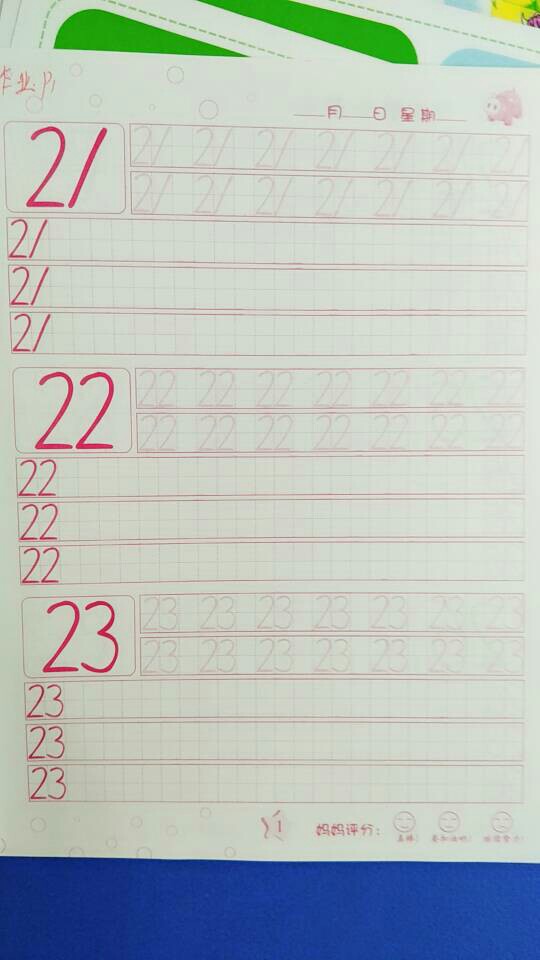 作业 P1
月 日 星期
21 21 21 21 21 21 21 21
21 21 21 21 21 21 21
21
21
21
22 22 22 22 22 22 22 22
22 22 22 22 22 22 22
22
22
22
23 23 23 23 23 23 23 23
23 23 23 23 23 23 23
23
23
23
1 妈妈评分:
真棒! 要加油哦!